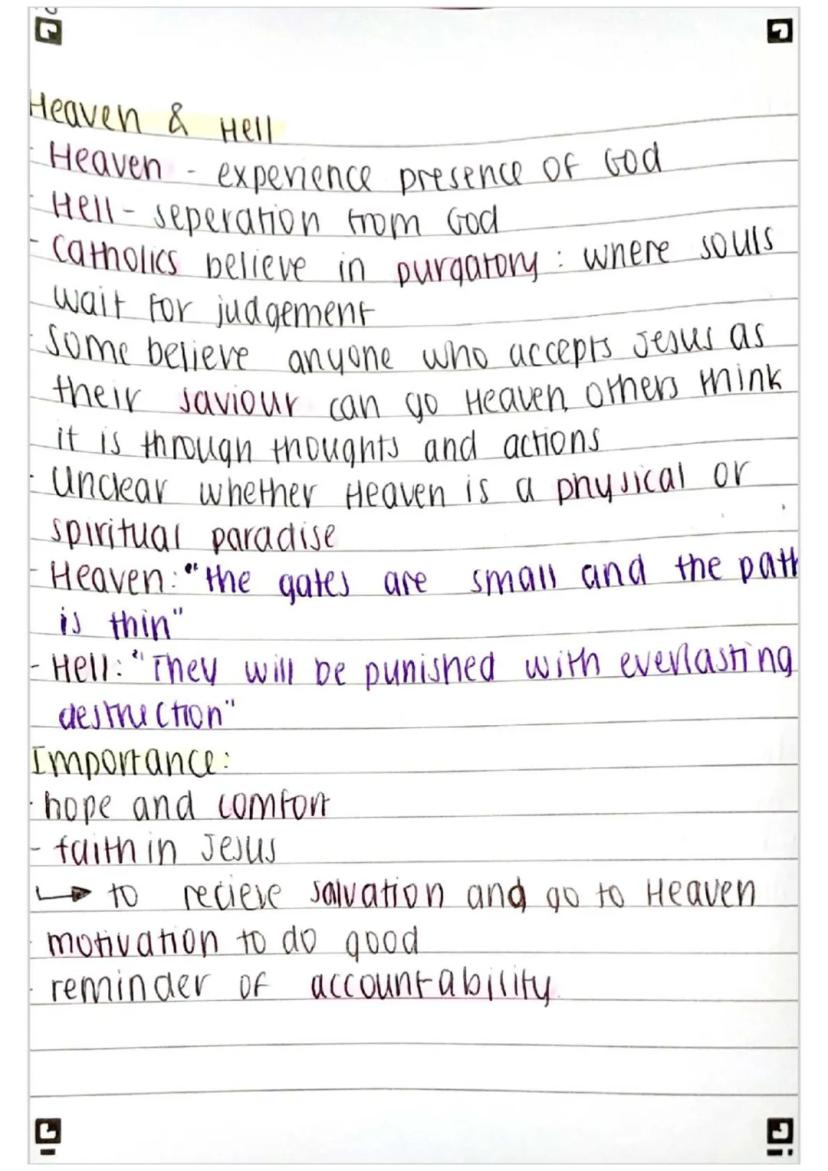 Heaven & Hell
- Heaven - experience presence of God
- Hell - seperation from God
- Catholics believe in purgatory : where souls
wait for judgement
- Some believe anyone who accepts Jesus as
their saviour can go Heaven, others think
it is through thoughts and actions
- Unclear whether Heaven is a physical or
spiritual paradise
- Heaven: "the gates are small and the path
is thin"
- Hell: "They will be punished with everlasting
destruction"
Importance:
- hope and comfort
- faith in Jesus
↳ to recieve salvation and go to Heaven
- motivation to do good
- reminder of accountability